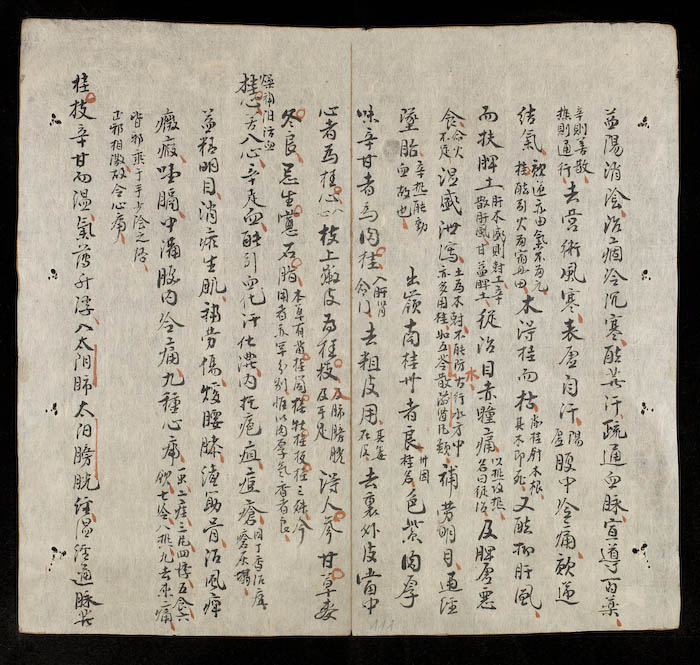 益陽消陰治痼冷沉寒能發汗疏通血脉宣導百藥
辛則善散熱則通行去營衛風寒表虛自汗陽虛腹中冷痛欬逆
結氣欬逆亦由氣不歸元桂能引火歸宿丹田木得桂而枯削桂釘木根其木即死又能抑肝風
而扶脾土肝木盛則尅土辛散肝風甘益脾土從治目赤腫痛以熱攻熱名曰從治及脾虛惡
食命火不足濕盛泄瀉土為木尅不能防水古行水方中亦多用桂如五苓散滋腎丸類補勞明目通經
墜胎辛熱能動血故也出嶺南桂州者良州因桂名色紫肉厚
味辛甘者為肉桂入肝腎命門去粗皮用其毒在皮去裏外皮當中
心者為桂心枝上嫩皮為桂枝及手足得人參甘草麥
冬良忌生葱石脂本草有菌桂筒桂牡桂板桂之殊今用者亦罕分別惟以肉厚氣香者良
桂心燥補阳活血苦入心辛走血能引血化汗化濃內托癰疽痘瘡同丁香治痘瘡灰塌
益精明目消瘀生肌補勞傷煖腰膝續筋骨治風痺
癥瘕噎膈中滿腹內冷痛九種心痛一虫二疰三風四悸五食六飲七冷八熱九去來痛
皆邪乘于手少陰之絡正邪相激故令心痛
桂枝辛甘而溫氣薄升浮入太阴肺太阳膀胱經溫經通脉發